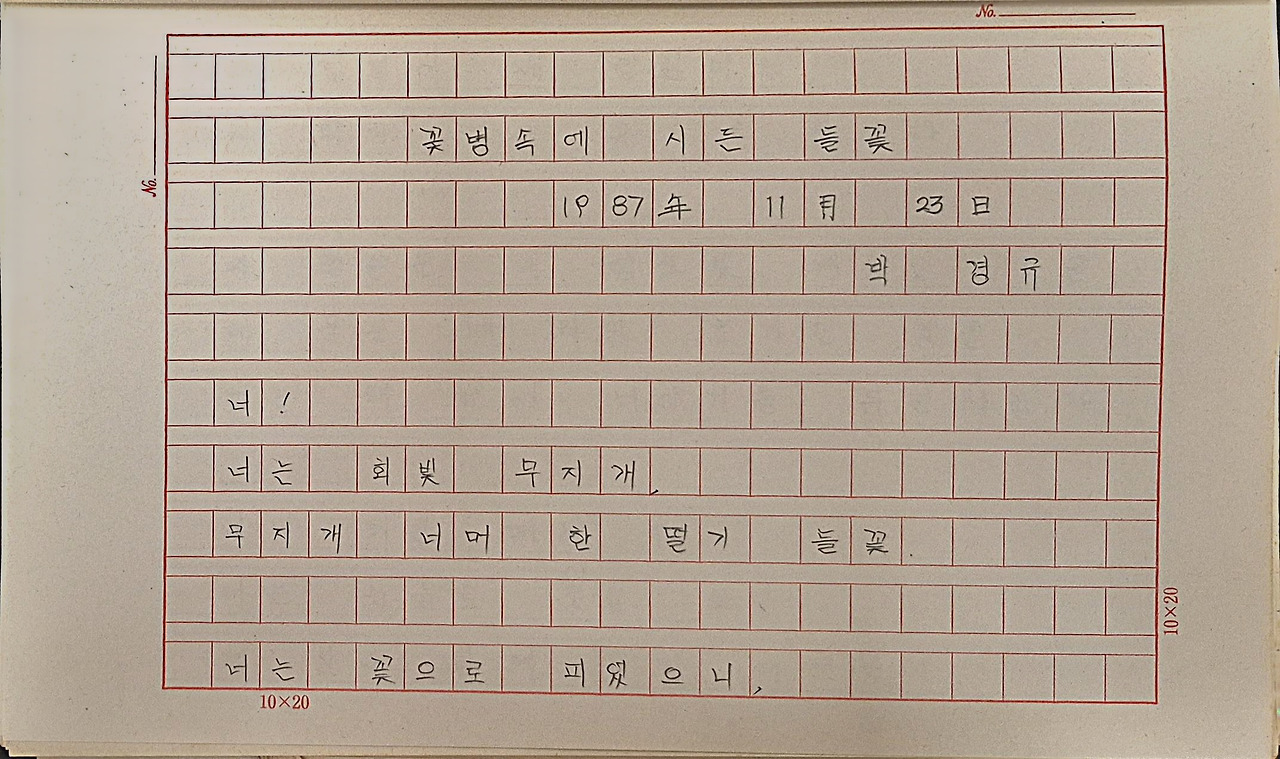 No.
꽃병속에 시든 들꽃
1987年 11月 23日
박 경규
너!
너는 회빛 무지개,
무지개 너머 한 떨기 들꽃.
너는 꽃으로 피었으니,
No.
10×20
10×20